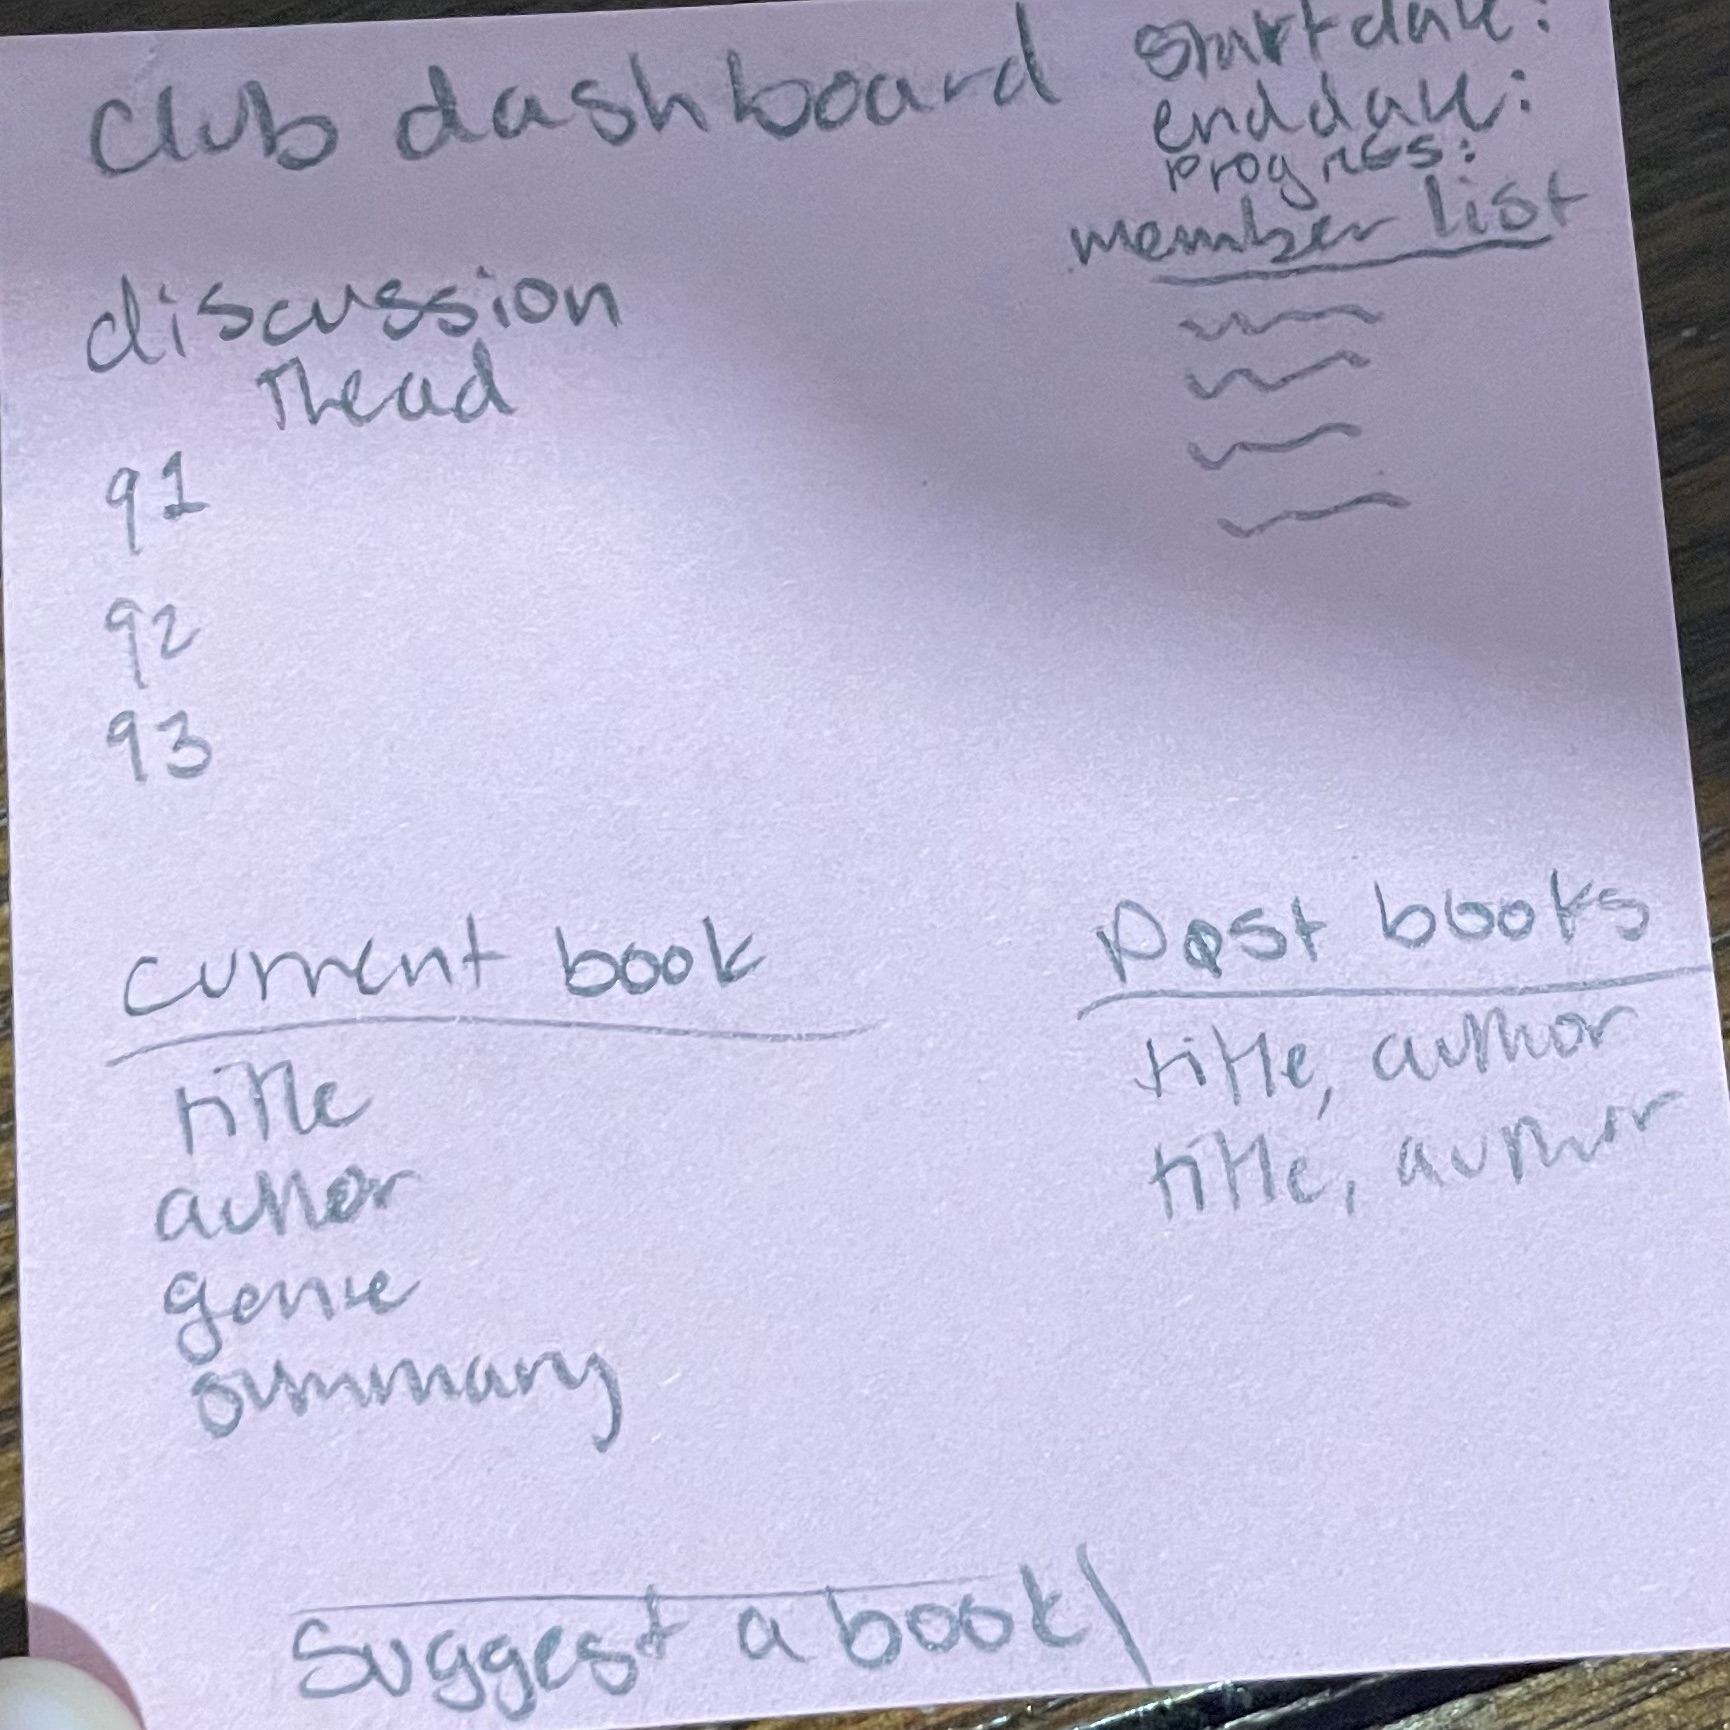 club dashboard
start date:
end date:
progress:
member list
discussion
Thead
q1
q2
q3
current book
title
author
genre
summary
past books
title, author
title, author
suggest a book